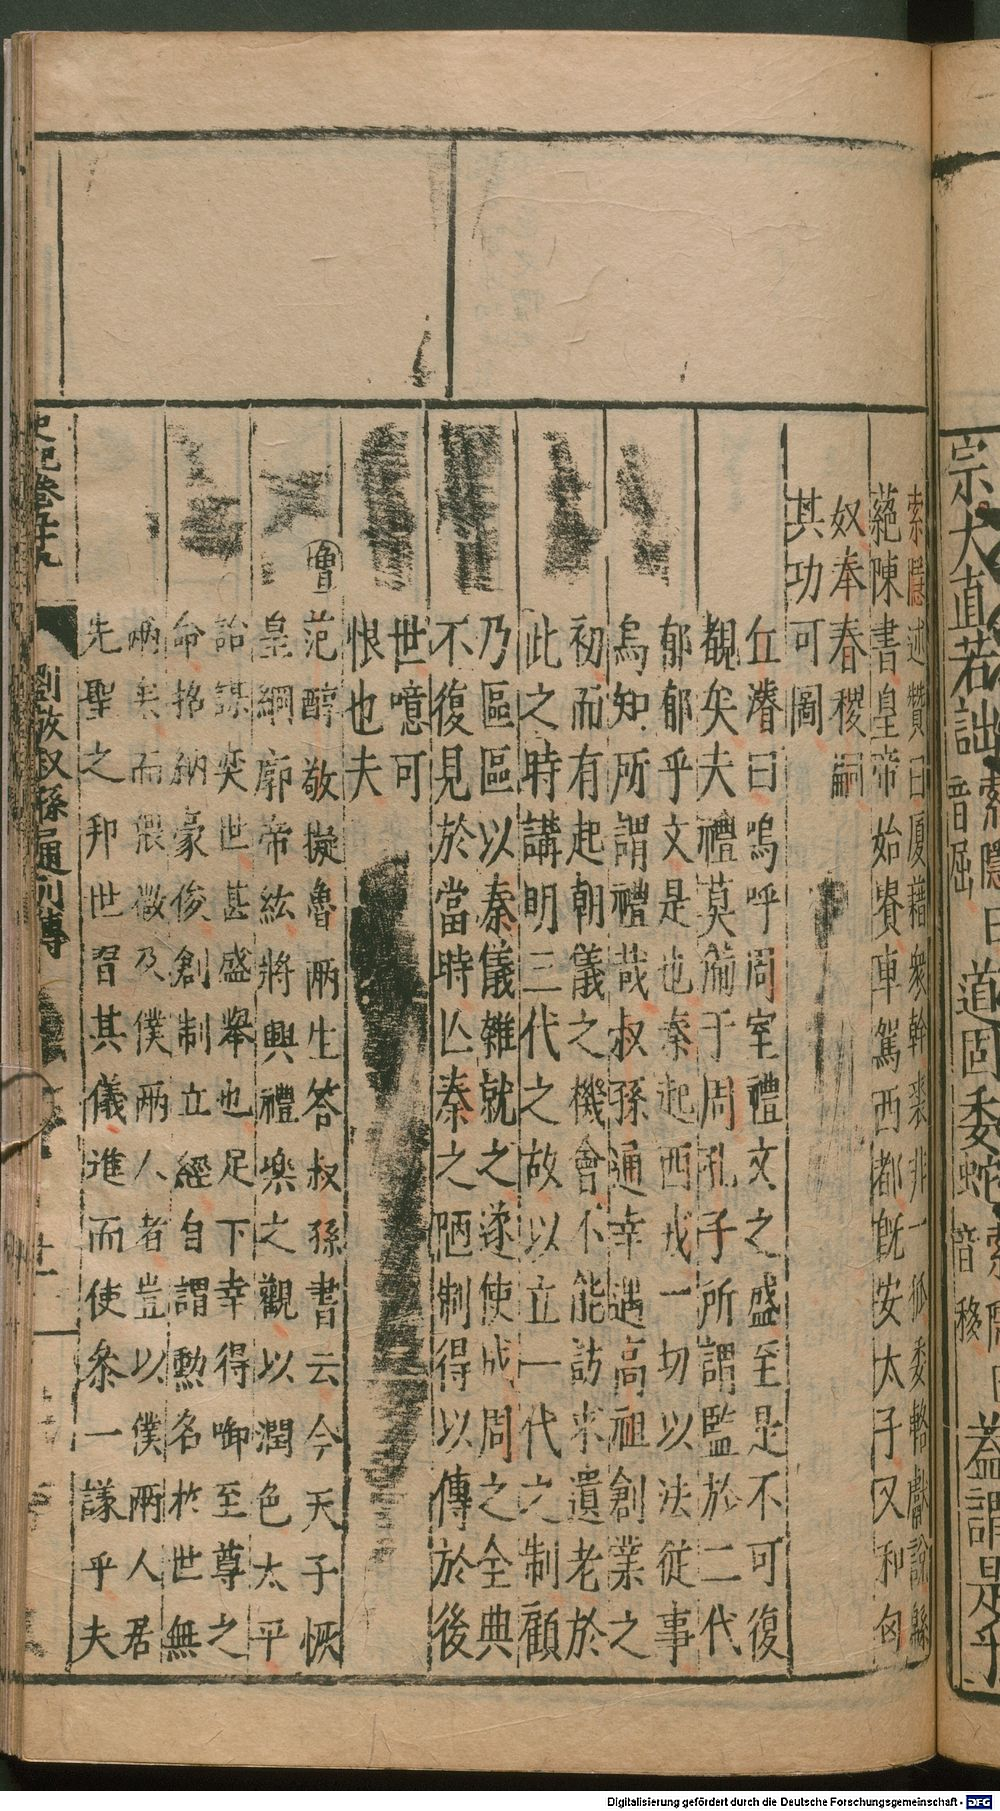 宗大直若詘
索隱曰
音屈
道固委蛇
索隱曰
音移
蓋謂是乎
索隱述贊曰廈藉衆幹裘非一狐委輅獻說緜
蕝陳書皇帝始貴車駕西都旣安太子又和匈
奴奉春稷嗣
其功可圖
丘濬曰嗚呼周室禮文之盛至是不可復
觀矣夫禮莫備于周孔子所謂監於二代
郁郁乎文是也秦起西戎一切以法從事
烏知所謂禮哉叔孫通幸遇高祖創業之
初而有起朝儀之機會不能訪求遺老於
此之時講明三代之故以立一代之制顧
乃區區以秦儀雜就之遂使成周之全典
不復見於當時亾秦之陋制得以傳於後
世噫可
恨也夫
魯
范醇敬擬魯兩生答叔孫書云今天子恢
皇綱廓帝紘將興禮樂之觀以潤色太平
詒謀奕世甚盛舉也足下幸得啣至尊之
命招納豪俊創制立經自謂勳名於世無
兩矣而猥徵及僕兩人者豈以僕兩人君
先聖之邦世習其儀進而使叅一議乎夫
史記卷九十九
劉敬叔孫通列傳
Digitalisierung gefördert durch die Deutsche Forschungsgemeinschaft - DFG